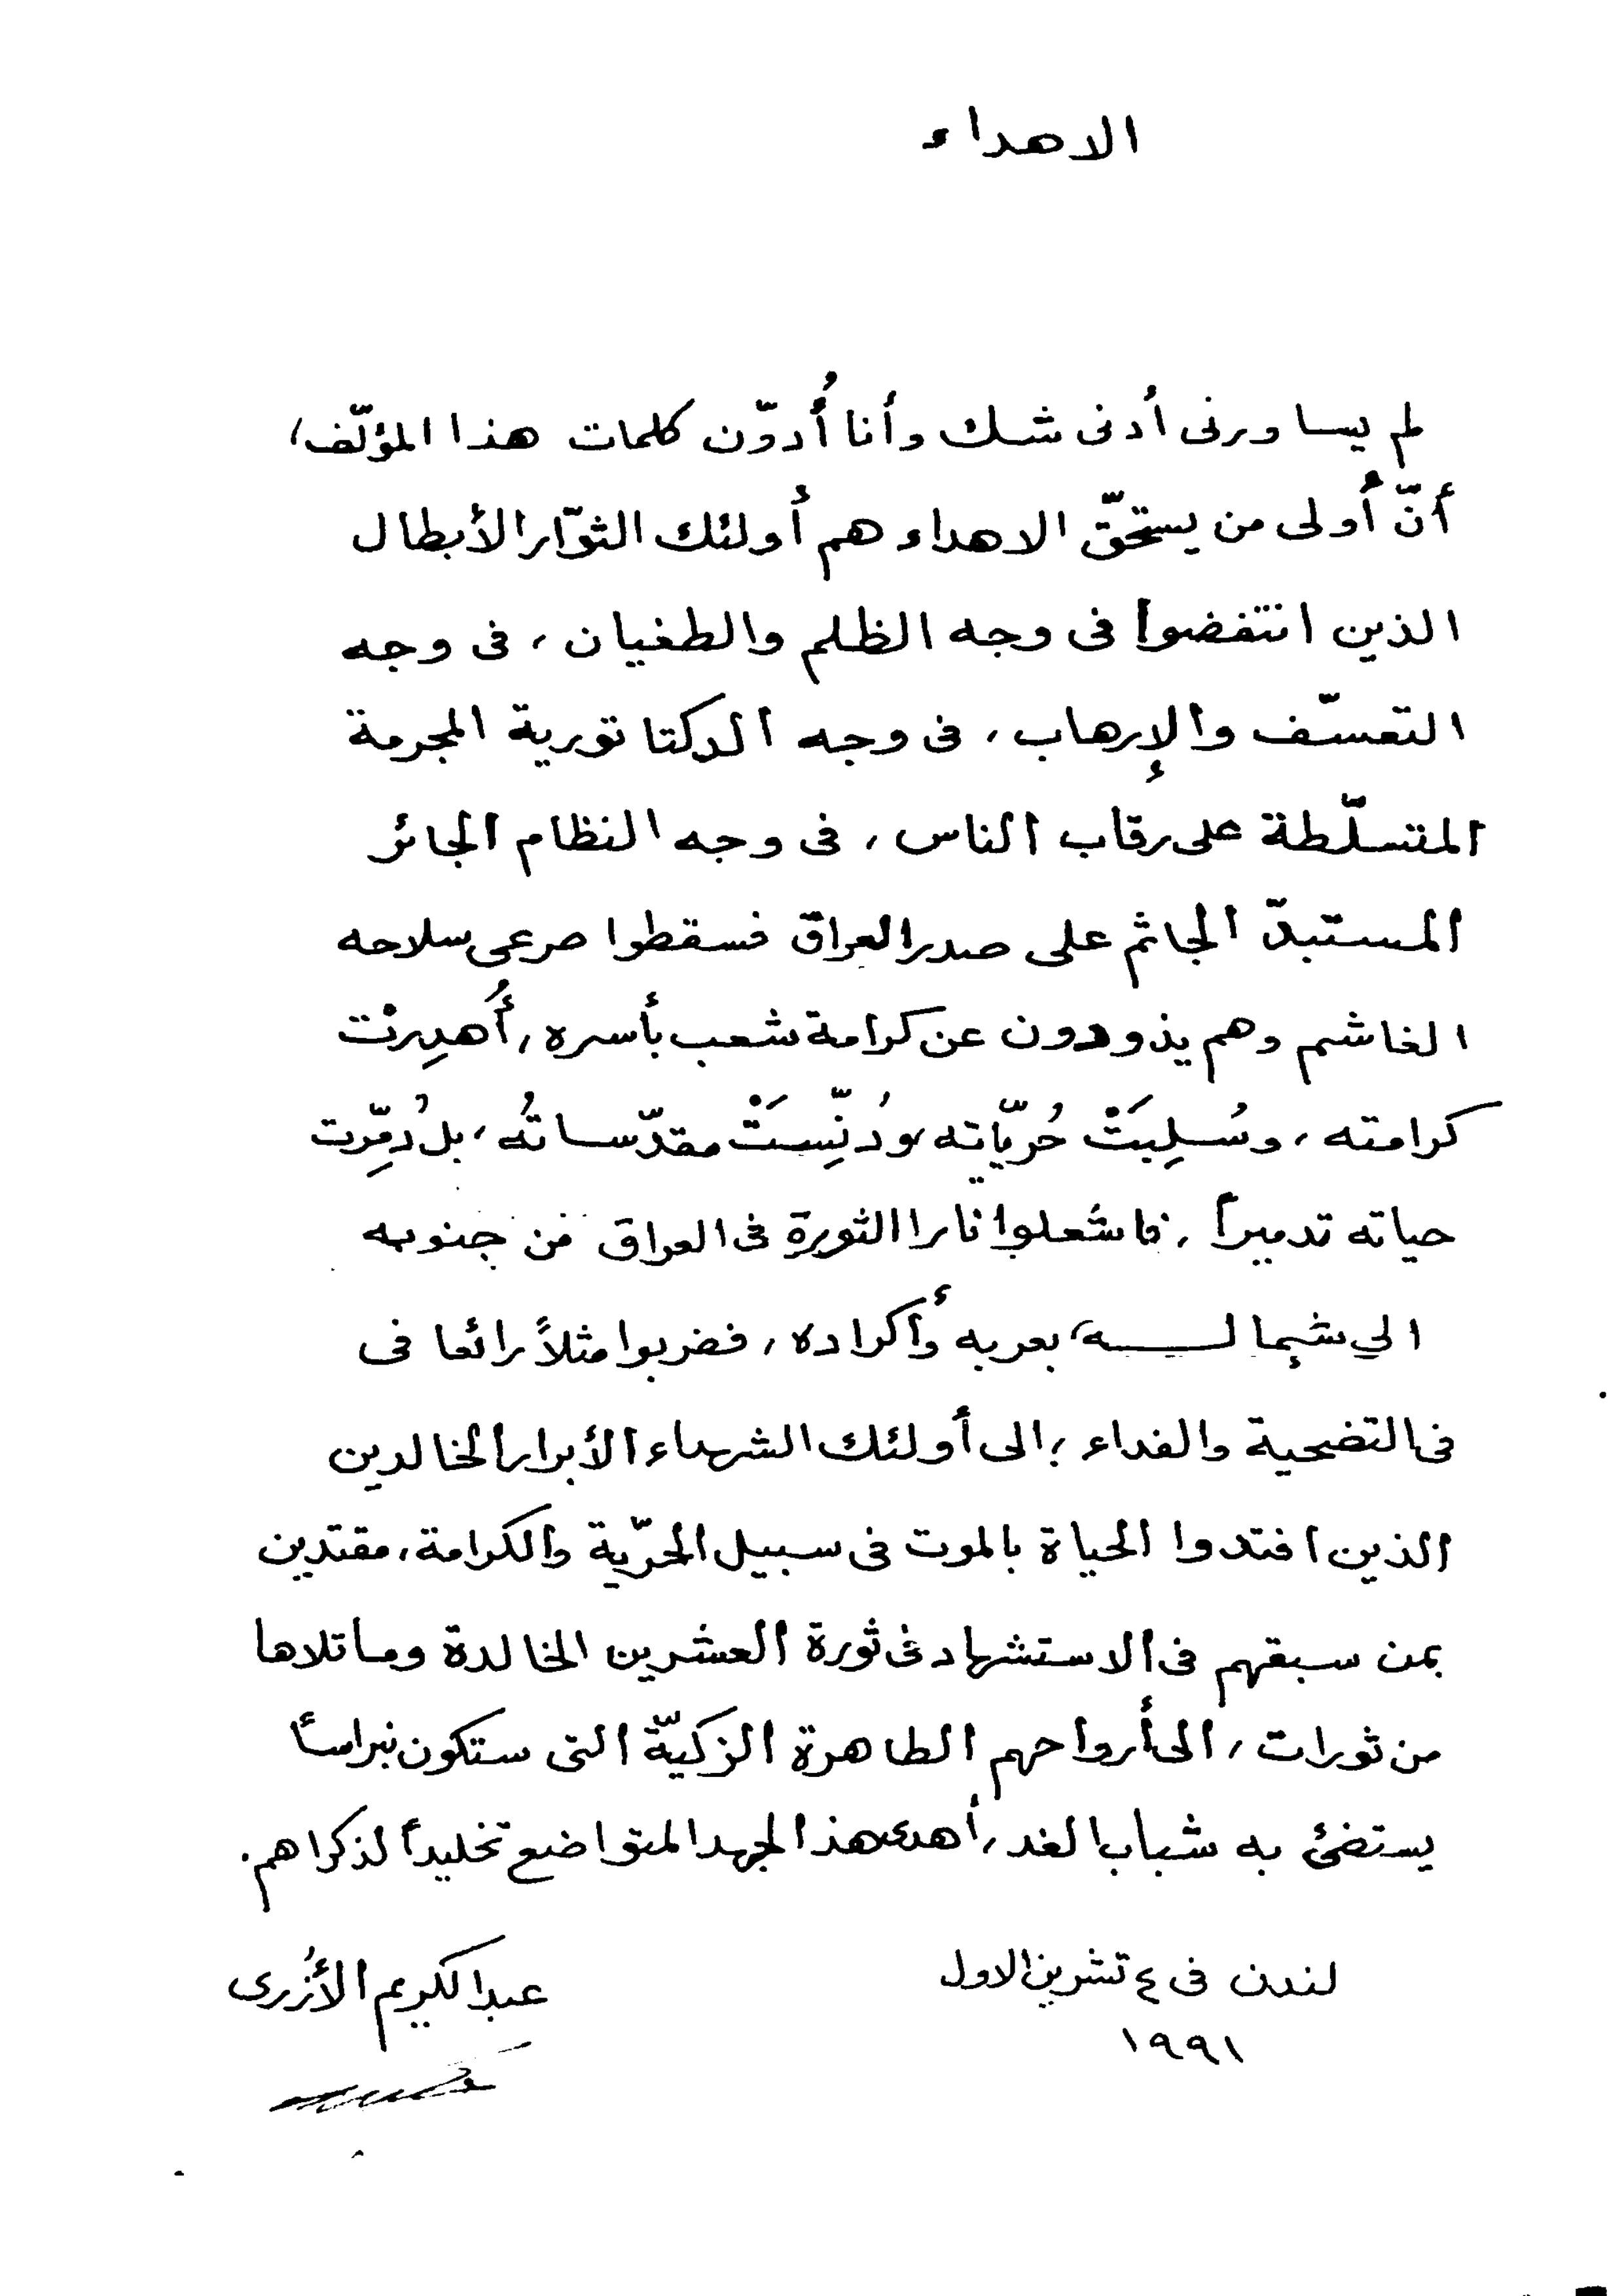 الاهداء
لم يساورنى أدنى شك وأنا أُدوّن كلمات هذا المؤلّف،
أنّ أولى من يستحقّ الاهداء هم أولئك الثوّار الأبطال
الذين انتفضوا فى وجه الظلم والطغيان، فى وجه
التعسّف والإرهاب، فى وجه الدكتاتورية المجرمة
المتسلّطة على رقاب الناس، فى وجه النظام الجائر
المستبدّ الجاثم على صدر العراق فسقطوا صرعى سلاحه
الغاشم وهم يذودون عن كرامة شعب بأسره، أُهدِرتْ
كرامته، وسُلِبَتْ حُريّاته، ودُنِّسَتْ مقدّساتُه، بل دُمِّرت
حياته تدميراً، فاشعلوا نار الثورة فى العراق من جنوبه
الى شماله، بعربه وأكراده، فضربوا مثلاً رائعا فى
فى التضحية والفداء، الى أولئك الشهداء الأبرار الخالدين
الذين افتدوا الحياة بالموت فى سبيل الحرّية والكرامة، مقتدين
بمن سبقهم فى الاستشهاد فى ثورة العشرين الخالدة وما تلاها
من ثورات، الى أرواحهم الطاهرة الزكيّة التى ستكون نبراساً
يستضئ به شباب الغد، أهدى هذا الجهد المتواضع تخليداً لذكراهم.
لندن فى ٤ تشرين الاول عبد الكريم الأُزرى
١٩٩١